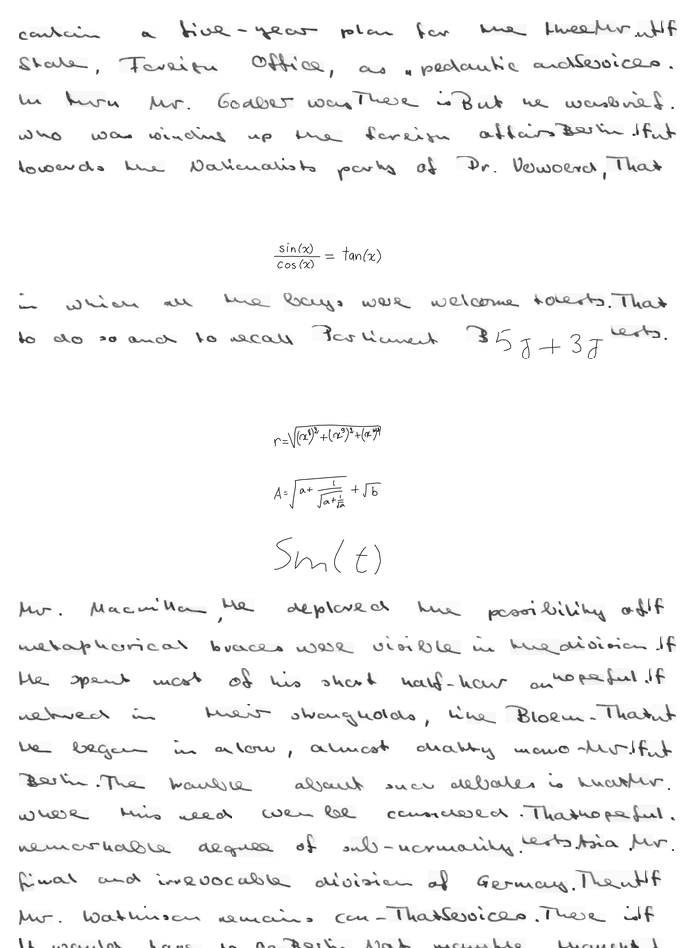 contain a five-year plan for the three Mr. If
State, Foreign Office, as " pedantic and Services.
In turn Mr. Godber was There is But he was brief.
who was winding up the foreign affairs Berlin. If
towards the Nationalists party of Dr. Vewoerd, That
\frac{sin(x)}{cos(x)} = tan(x)
in which all the boys were welcome to tests. That
to do so and to recall Parliament B 5g + 3g tests.
r = \sqrt{(x^8)^2 + (x^9)^2 +
A = \sqrt{a + \frac{1}{\sqrt{a + \frac{1}{\sqrt{a}}}}} + \sqrt{b}
Sm(t)
Mr. Macmillan, He deplored the possibility of If
metaphorical braces were visible in the division. If
He spent most of his short half-hour on hopeful. If
network in their strongholds, like Bloem- That
He began in a low, almost chatty mono- Mr. If
Berlin. The trouble about such debates is that Mr.
where this need can be considered. That hopeful.
remarkable degree of sub-normality. tests. Asia. Mr.
final and irrevocable division of Germany. The If
Mr. Watkinson remains con- That Services. There is If